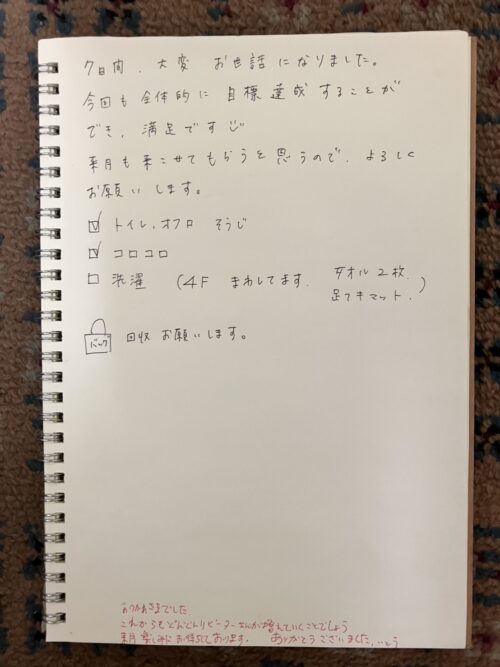 7日間、大変 お世話になりました。
今回も全体的に 目標達成することが
でき、満足です
来月も来こせてもらうと思うので、よろしく
お願いします。
☑ トイレ、オフロ そうじ
☑ コロコロ
□ 洗濯 (4F まわしてます。 タオル2枚、
足フキマット。)
バッグ 回収お願いします。
おつかれさまでした
これからもどんどんリピーターさんが増えていくことでしょう
来月楽しみにお待ちしております。 ありがとうございました。